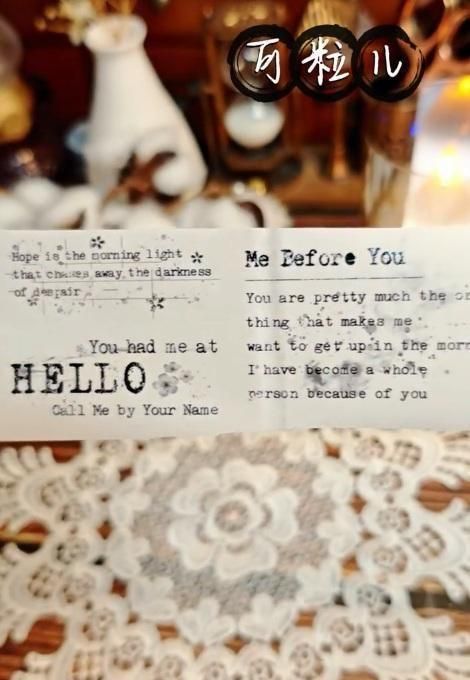 可粒儿
Hope is the morning light
that chases away the darkness
of despair
You had me at
HELLO
Call Me by Your Name
Me Before You
You are pretty much the
thing that makes me
want to get up in the
I have become a whole
person because of you